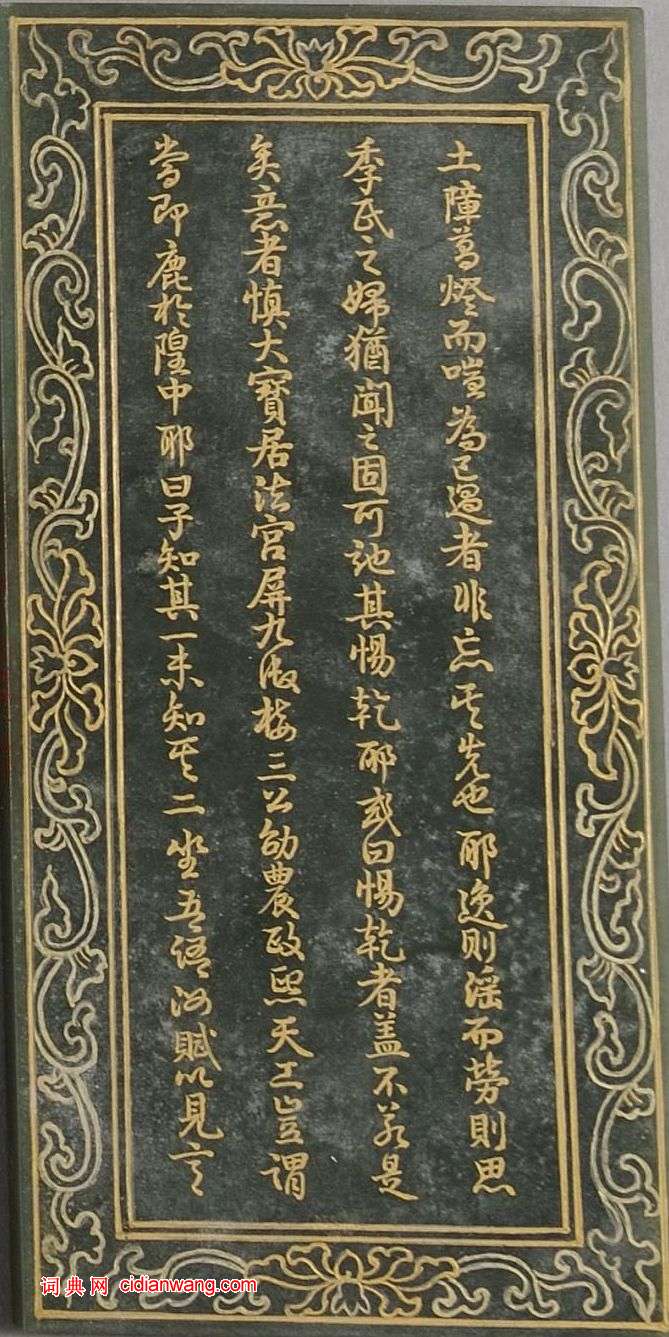 土障葛燈而嗤為已過者非忘其先也耶逸則淫而勞則思
季氏之婦猶聞之固可詑其惕乾耶或曰惕乾者蓋不若是
矣意者慎大寶居法宮屏九俶接三公劭農政熙天工豈謂
當即鹿於隍中耶曰子知其一未知其二坐吾語汝賦以見言
词典网 cidianwang.com